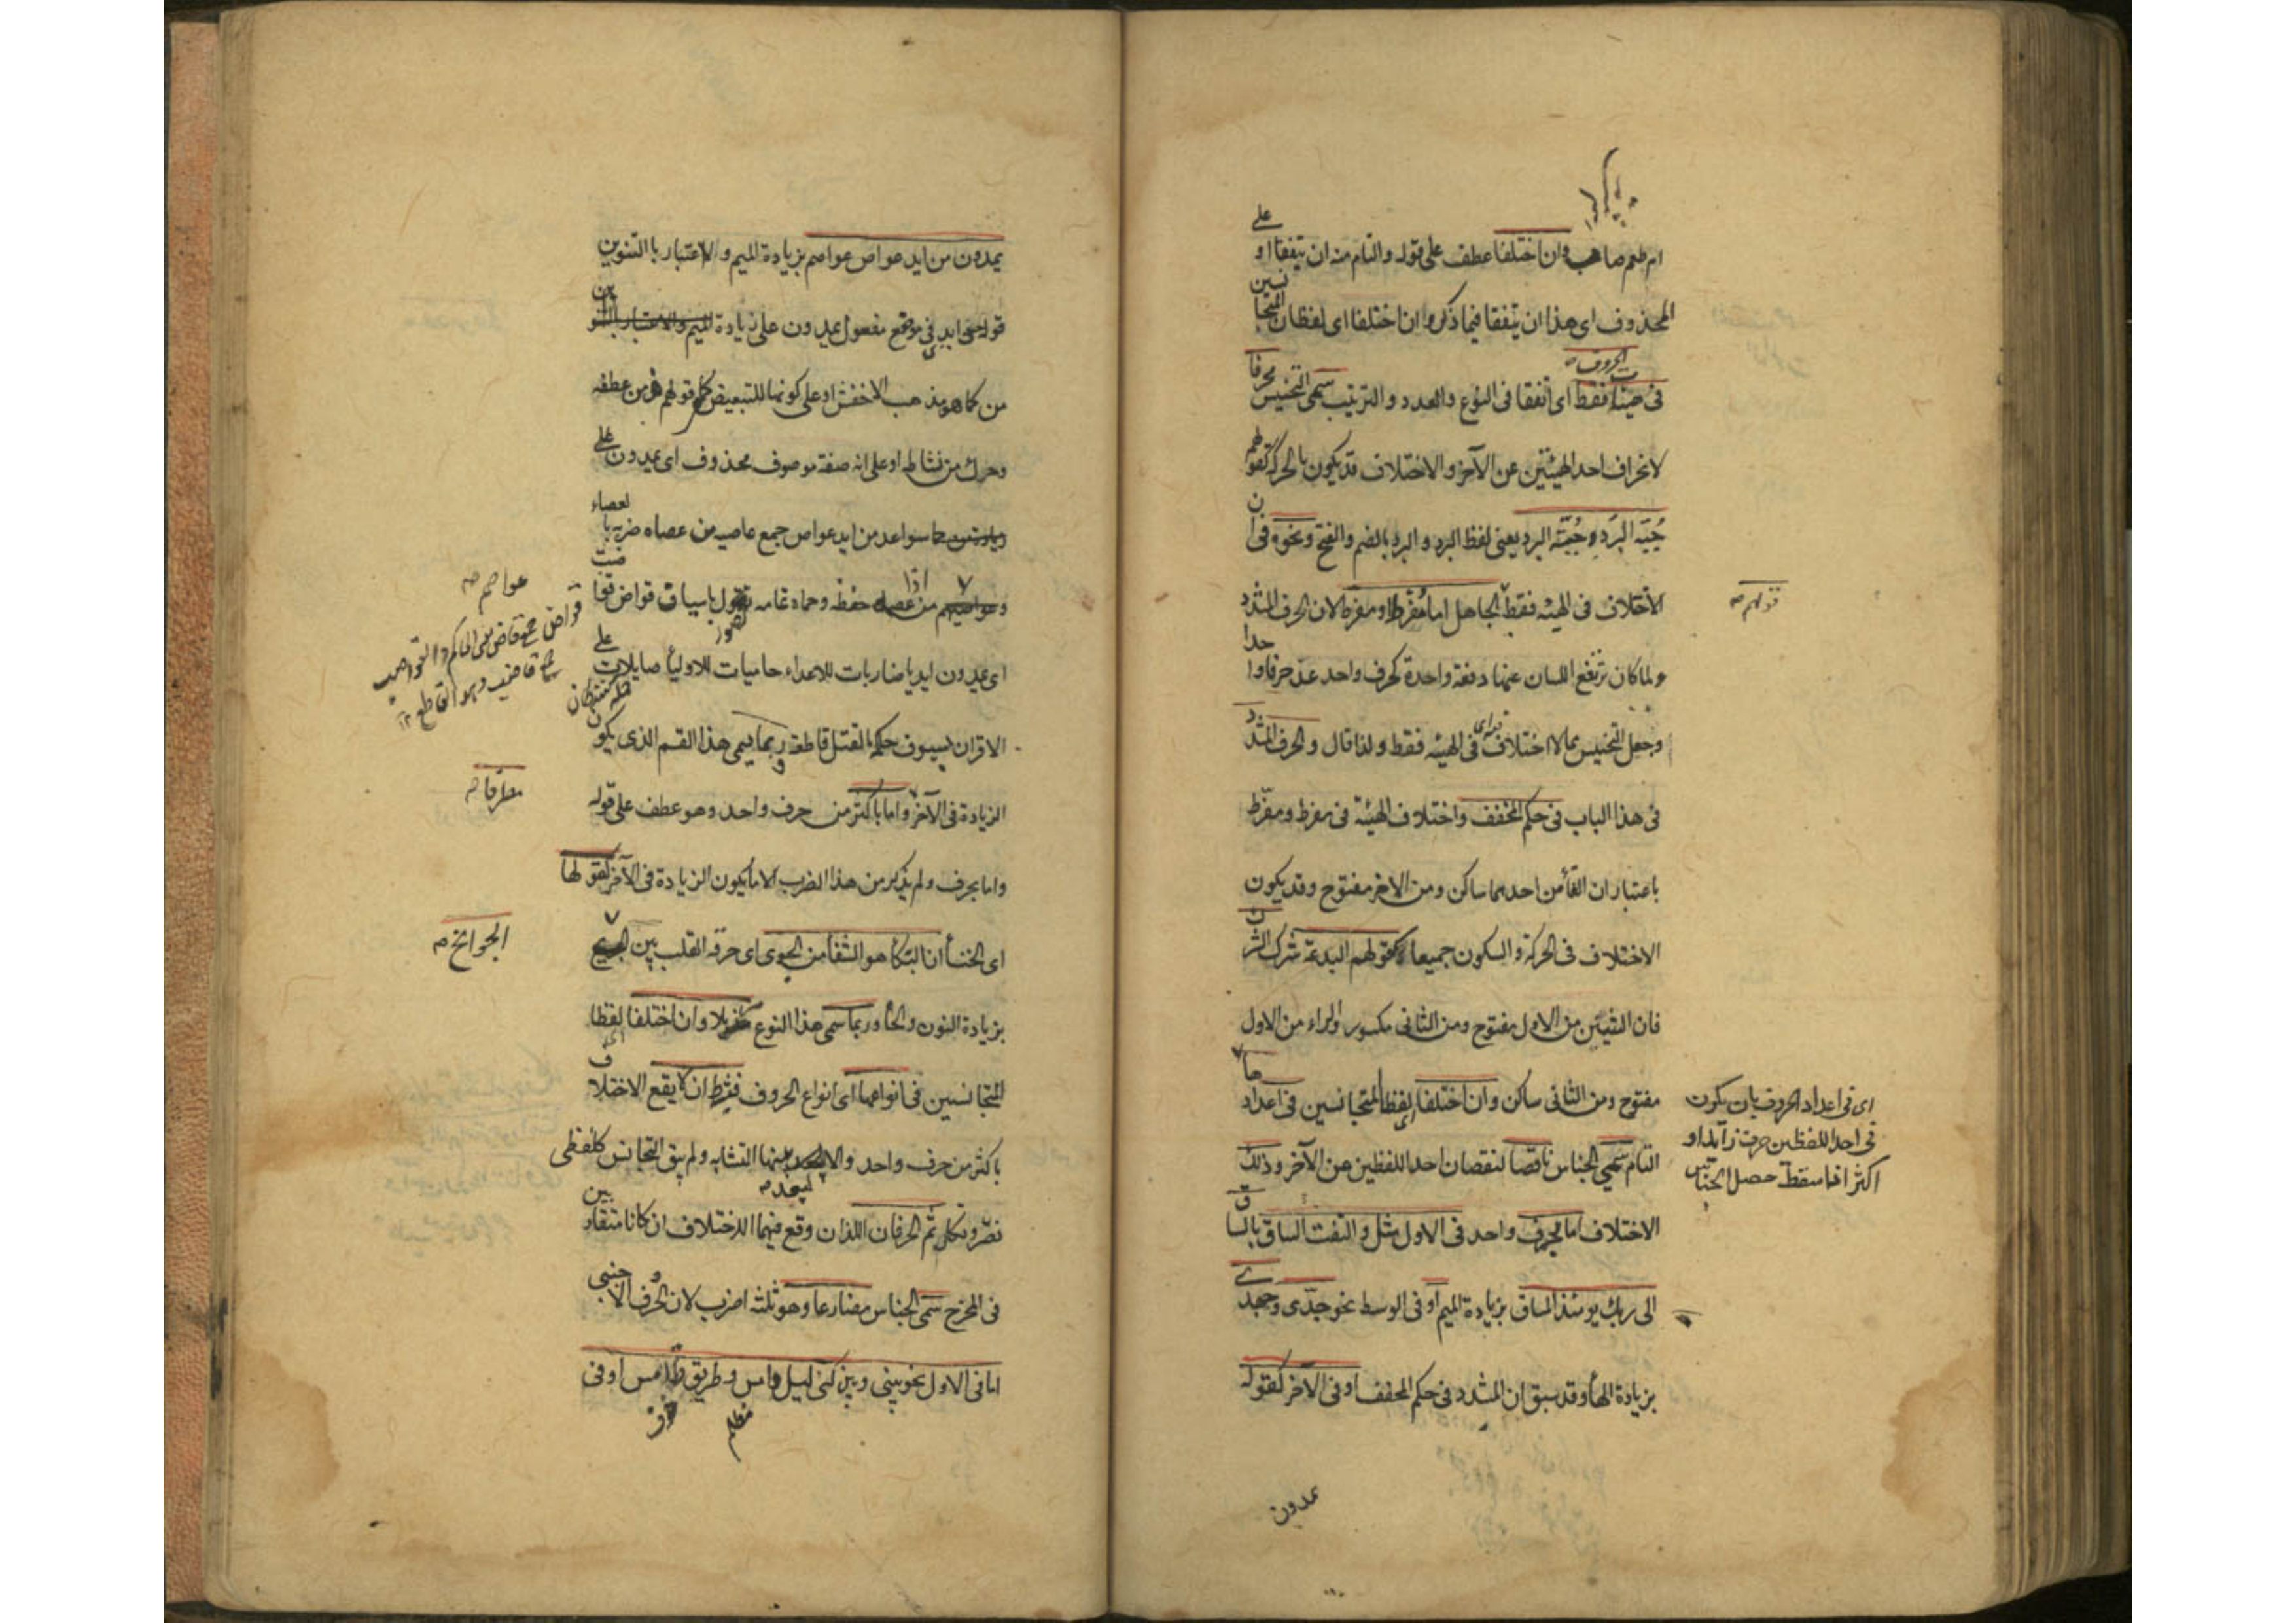 وان اختلفا عطف على قوله والتام منه ان يتفقا او على
المحذوف اى هذا ان يتفقا فيما ذكر وان اختلفا اى لفظا المتجانسين
فى هيئات الحروف فقط اى اتفقا فى النوع والعدد والترتيب سمى التجنيس محرفا
لانحراف احد الهيئتين عن الآخر والاختلاف قد يكون بالحركة كقولهم
جبة البرد جنة البرد يعنى لفظ البرد و البرد بالضم والفتح ونحوه فى ان
الاختلاف فى الهيئة فقط الجاهل اما مفرط او مفرط لان الحرف المشدد
قولهم
ولما كان ترتفع اللسان عنهما دفعة واحدة كحرف واحد عد حرفا واحدا
وجعل التجنيس مما لا اختلاف فيه اى فى الهيئة فقط ولذا قال والحرف المشدد
فى هذا الباب فى حكم المخفف واختلاف الهيئة فى مفرط ومفرط
باعتبار ان الفأ من احدهما ساكن ومن الاخر مفتوح وقد يكون
الاختلاف فى الحركة والسكون جميعا كقولهم البدعة شرك الشرك
فان الشين من الاول مفتوح ومن الثانى مكسور والراء من الاول
مفتوح ومن الثانى ساكن وان اختلفا اى لفظا المتجانسين فى اعدادها
اى فى اعداد الحروف بان يكون
فى احد اللفظين حرف زايد او
اكثر اذا سقط حصل الجناس
التام سمى الجناس ناقصا لنقصان احد اللفظين عن الآخر وذلك
الاختلاف اما بحرف واحد فى الاول مثل والتفت الساق بالساق
الى ربك يومئذ المساق بزيادة الميم او فى الوسط نحو جدى جهدى
بزيادة الهأ وقد سبق ان المشدد فى حكم المخفف او فى الآخر كقوله
يمدون
يمدون من ايد عواص عواصم بزيادة الميم و لا اعتبار با التنوين
قوله من ايد فى موضع مفعول يمدون على زيادة
من كما هو مذهب الاخفش او على كونها للتبعيض كما فى قولهم هز من عطفه
وحرك من نشاطه او على انه صفة موصوف محذوف اى يمدون
سواعد من ايد عواص جمع عاصية من عصاه ضربه بالعصاء
عواصم
من حفظه وحماه تصول باسياف قواض قواضب
قواض جمع قاض بمعنى الحاكم والقواضب
جمع قاضب وهو القاطع ١٢
اى يمدون ايديا ضاربات للاعداء حاميات للاوليأ صايلات على
الاقران بسيوف حاكمة بالقتل قاطعة و ربما يسمى هذا القسم الذى يكون
مطرفا
الزيادة فى الآخر واما باكثر من حرف واحد وهو عطف على قوله
واما بحرف ولم يذكر من هذا الضرب الا ما يكون الزيادة فى الآخر كقولها
اى الخنسأ ان البكأ هو الشفأ من الجوى اى حرقة القلب بين
الجوانح
بزيادة النون والحأ وربما سمى هذا النوع مذيلا وان اختلفا اى لفظا
المتجانسين فى انواعها اى انواع الحروف فيشترط ان لا يقع الاختلاف
باكثر من حرف واحد والا لبعد بينهما التشابه ولم يبق التجانس كلفظى
نصر ونكل ثم الحرفان اللذان وقع فيهما الاختلاف ان كانا متقاربين
فى المخرج سمى الجناس مضارعا وهو ثلثة اضرب لان الحرف الاجنبى
اما فى الاول نحو بينى وبين كنى ليل دامس وطريق طامس او فى
مظلم